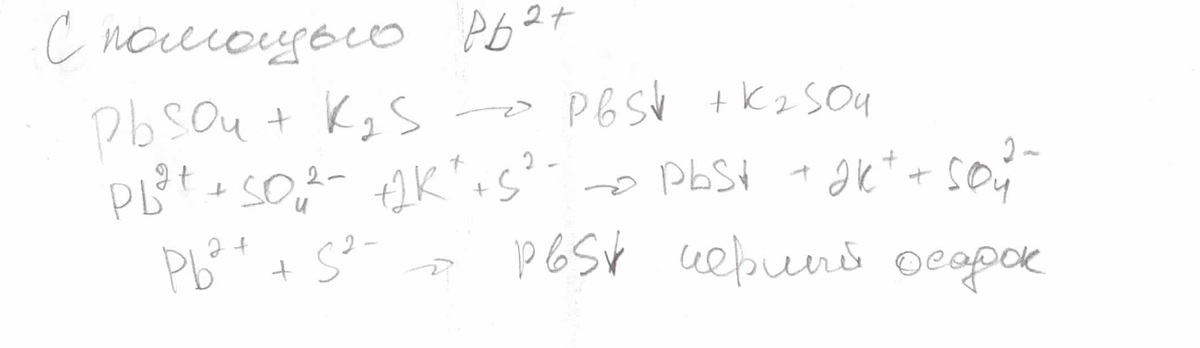 С помощью Pb²⁺
PbSO₄ + K₂S → PbS↓ + K₂SO₄
Pb²⁺ + SO₄²⁻ + 2K⁺ + S²⁻ → PbS↓ + 2K⁺ + SO₄²⁻
Pb²⁺ + S²⁻ → PbS↓ черный осадок